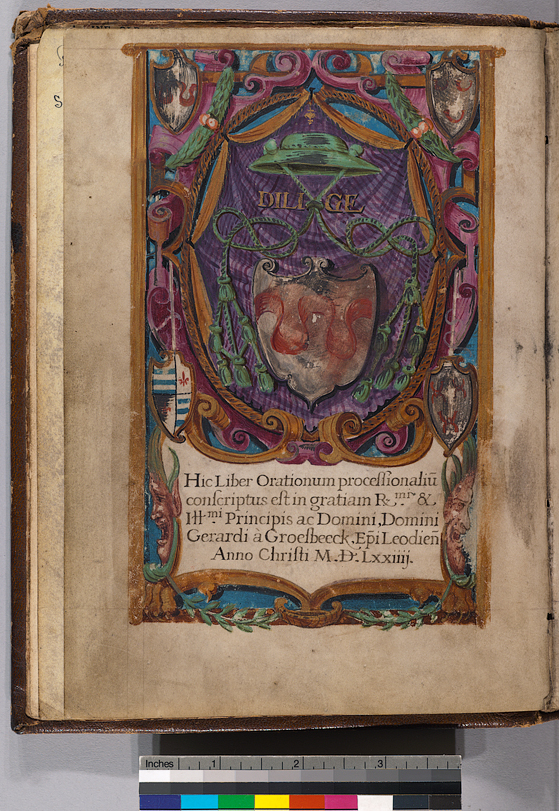 S
DILIGE
Hic Liber Orationum processionaliū
conscriptus est in gratiam R.mi &
Ill.mi Principis ac Domini, Domini
Gerardi à Groesbeeck, Ep̄i Leodien̄
Anno Christi M.D.Lxxiiij.
Inches 1 2 3